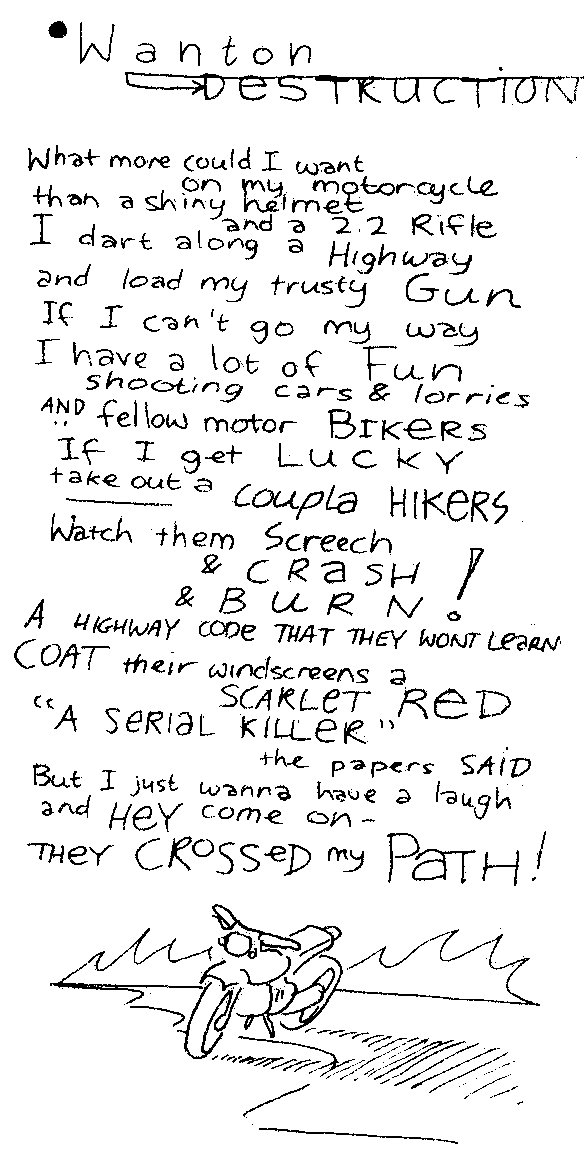 Wanton
DESTRUCTION
What more could I want
on my motorcycle
than a shiny helmet
and a 2.2 Rifle
I dart along a Highway
and load my trusty Gun
If I can't go my way
I have a lot of Fun
shooting cars & lorries
AND fellow motor BIKERS
If I get LUCKY
take out a coupla HIKERS
Watch them Screech
& CRaSH !
& BURN
A HIGHWAY CODE THAT THEY WONT LEARN
COAT their windscreens a
SCARLET RED
"A SERIAL KILLER"
the papers SAID
But I just wanna have a laugh
and HEY come on-
THEY CROSSED my PATH!